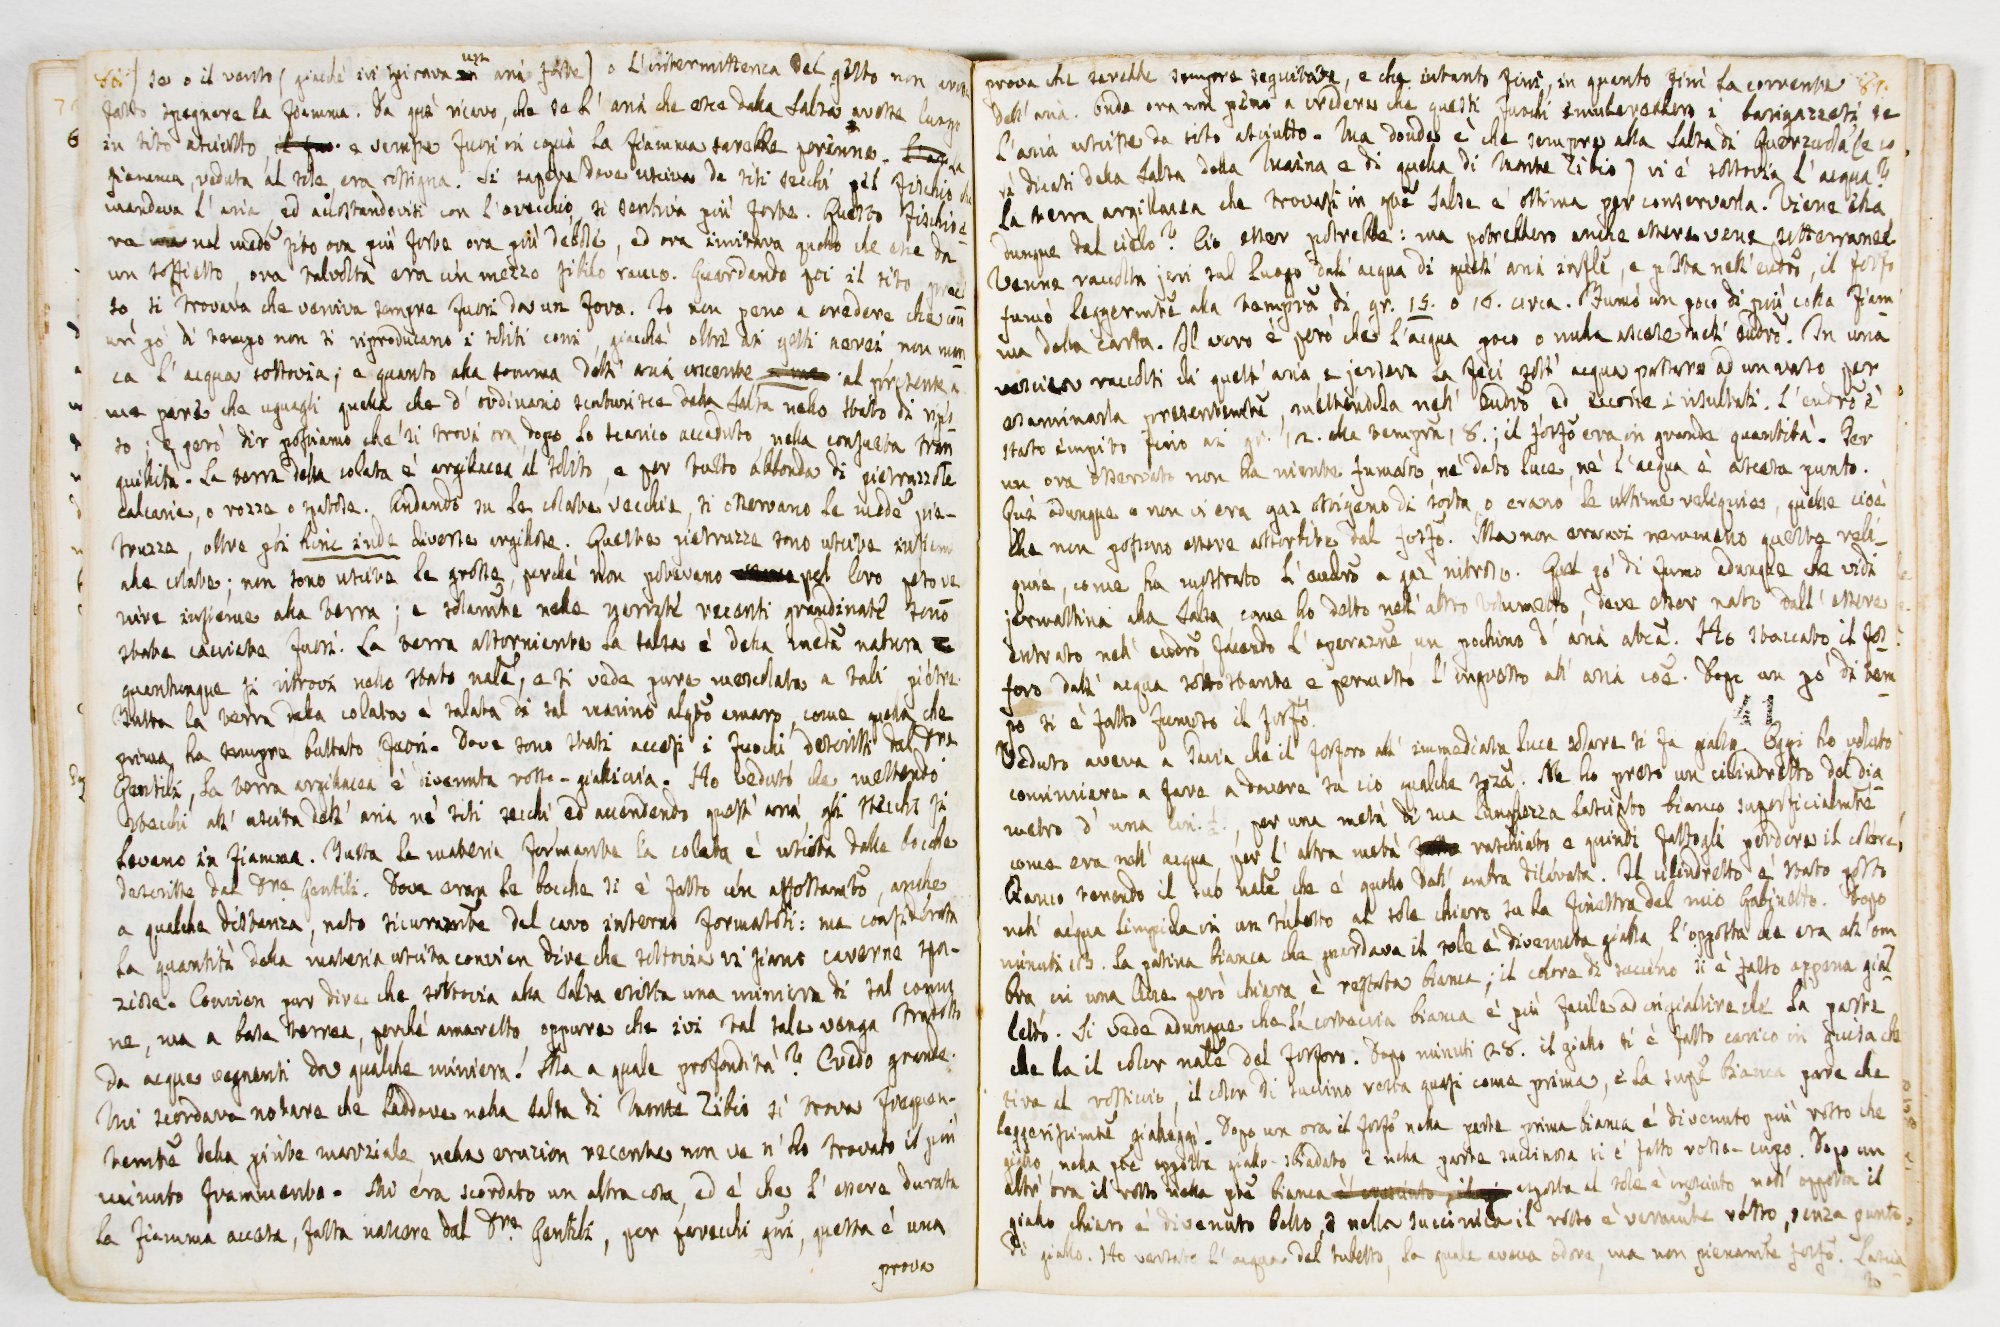 80.) se o il vento (giacché ivi spirava un aria forte) o l'intermittenza del getto non avesse
fatto spegnere la fiamma. Da qui ricavo, che se l'aria che esce dalla Salsa avesse luogo
in sito asciutto e venisse fuori in copia la fiamma sarebbe perenne. L'acqua
fiamma, veduta al sole, era rossigna. Si sapeva dove usciva da siti secchi pel fischio che
mandava l'aria, ed accostandovisi con l'orecchio, si sentiva più forte. Questo fischio e-
ra nel medo sito ora più forte ora più debole, ed ora imitava quello che esce da
un soffietto, ora talvolta era un mezzo sibilo rauco. Guardando poi il sito preci
so si trovava che veniva sempre fuori da un foro. Io non peno a credere che con
un pò di tempo non si riproducano i soliti coni, giacché oltre ai getti aerei, non man
ca l'acqua sottovia; e quanto alla somma dell'aria uscente al presente a
me pare che uguagli quella che d'ordinario scaturisce dalla Salsa nello stato di ripo
so; e però dir possiamo che si trovi ora dopo lo scarico accaduto nella consueta tran
quillità. La terra della colata è argillacea al solito, e per tutto abbonda di pietruzzole
calcarie, o rozze o spatose. Andando su le colate vecchie, si osservano le mede pie-
truzze, oltre poi hinc inde diverse argillose. Queste pietruzze sono uscite insieme
alle colate; non sono uscite le grosse, perché non potevano pel loro peso ve
nire insieme alla terra; e solamte nelle
state cacciate fuori. La terra attorniente la salsa è della meda natura
quantunque si ritrovi nello stato nale, e si vede pure mescolata a tali pietre.
Tutta la terra della colata è salata di sal marino alqto amaro, come quella che
prima ha sempre buttato fuori. Dove sono stati accesi i fuochi descritti dal Dre
Gentili, la terra argillacea è divenuta rossa-gialliccia. Ho veduto che mettendo
stecchi all'uscita dell'aria ne' siti secchi ed accendendo quest'aria gli stecchi si
levano in fiamma. Tutta la materia formante la colata è uscita dalle bocche
descritte dal Dre Gentili. Dove eran le bocche si è fatto un affossamto, anche
a qualche distanza, nato sicuramte dal cavo interno formatosi: ma considerata
la quantità della materia uscita convien dire che sottovia vi siano caverne spa-
ziose. Convien pur dire che sottovia alla Salsa esista una miniera di sal comu
ne, ma a base terrea, perché amaretto oppure che ivi tal sale venga tradotto
da acque vegnenti da qualche miniera! Ma a quale profondità? Credo grande.
Mi scordava notare che laddove nella salsa di Monte Zibio si trova frequen-
temte della pirite marziale, nella eruzion recente non ve n'ho trovato il più
minuto frammento. Mi era scordato un altra cosa, ed è che l'essere durata
la fiamma accesa, fatta nascere dal Dre Gentili, per parecchi giri, questa è una
prova
prova che sarebbe sempre seguitata, e che intanto finì, in quanto finì la corrente 81.
dell'aria. Onde ora non peno a credere che questi fuochi emulerebbero i barigazzesi se
l'aria uscisse da sito asciutto. Ma donde è che sempre alla Salsa di Querzuola (e co
sì dicasi della Salsa della Maina e di quella di Monte Zibio) vi è sottovia l'acqua?
La terra argillacea che trovasi in qte Salse è ottima per conservarla. Viene ella
dunque dal cielo? Ciò esser potrebbe: ma potrebbero anche essere vene sotterranee
Venne raccolta jeri sul luogo dall'acqua di quest'aria infle, e posta nell'eudro, il fosfo
fumò leggermte alla tempra di gr. 15. o 16. circa. Fumò un poco di più colla fiam
ma della carta. Il vero è però che l'acqua poco o nulla ascese nell'eudro. In una
vescica raccolsi di quest'aria e jersera la feci sott'acqua passare ad un vaso per
esaminarla presentemte, mettendola nell'eudro ed eccone i risultati. L'eudro è
stato empito fino ai gr. 12. alla tempra 18.; il fosfo era in grande quantità. Per
un ora osservato non ha niente fumato, né dato luce, né l'acqua è ascesa punto.
Qui adunque o non vi era gaz ossigeno di sorta, o erano le ultime reliquie, quelle cioè
che non possono essere assorbite dal fosfo. Ma non eranvi nemmeno queste reli-
quie, come ha mostrato l'eudro a gaz nitroso. Quel pò di fumo adunque che vidi
jermattina alla Salsa come ho detto nell'altro Volumetto, deve esser nato dall'essere
entrato nell'eudro, facendo l'operazne, un pochino d'aria atca. Ho staccato il fos
foro dall'acqua sottostante e permesso l'ingresso all'aria coe. Dopo un pò di tem
po si è fatto fumoso il fosfo.
41
Veduto aveva a Pavia che il fosforo all'immediata luce solare si fa giallo. Oggi ho voluto
cominciare a fare a dovere su ciò qualche spza. Ne ho preso un cilindretto del dia
metro d'una lin. ½., per una metà di sua lunghezza lasciato bianco superficialmte
come era nell'acqua, per l'altra metà raschiato e quindi fattogli perdere il colore
bianco venendo il suo nale che è quello dell'ambra dilavata. Il cilindretto è stato posto
nell'acqua limpida in un tubetto al sole chiaro su la finestra del mio Gabinetto. Dopo
minuti 15. la patina bianca che guardava il sole è divenuta gialla, l'opposta che era all'om
bra in una luce però chiara è restata bianca; il colore di succino si è fatto appena gial
letto. Si vede adunque che la corteccia bianca è più facile ad ingiallire che la parte
che ha il color nale del fosforo. Dopo minuti 28. il giallo si è fatto carico in guisa che
tira al rossiccio, il color di succino resta quasi come prima, e la supe bianca pare che
leggerissimte gialleggi. Dopo un ora il fosfo nella parte prima bianca è divenuto più rosso che
giallo, nella pte opposta giallo-sbiadato e nella parte succinosa si è fatto rosso-cupo. Dopo un
altr'ora il rosso nella pte bianca esposta al sole è cresciuto nell'opposta il
giallo chiaro è divenuto bello, e nella succinica il rosso è veramte rosso, senza punto
di giallo. Ho versato l'acqua del tubetto, la quale aveva odore, ma non pienamte fosfo. Lascia
to